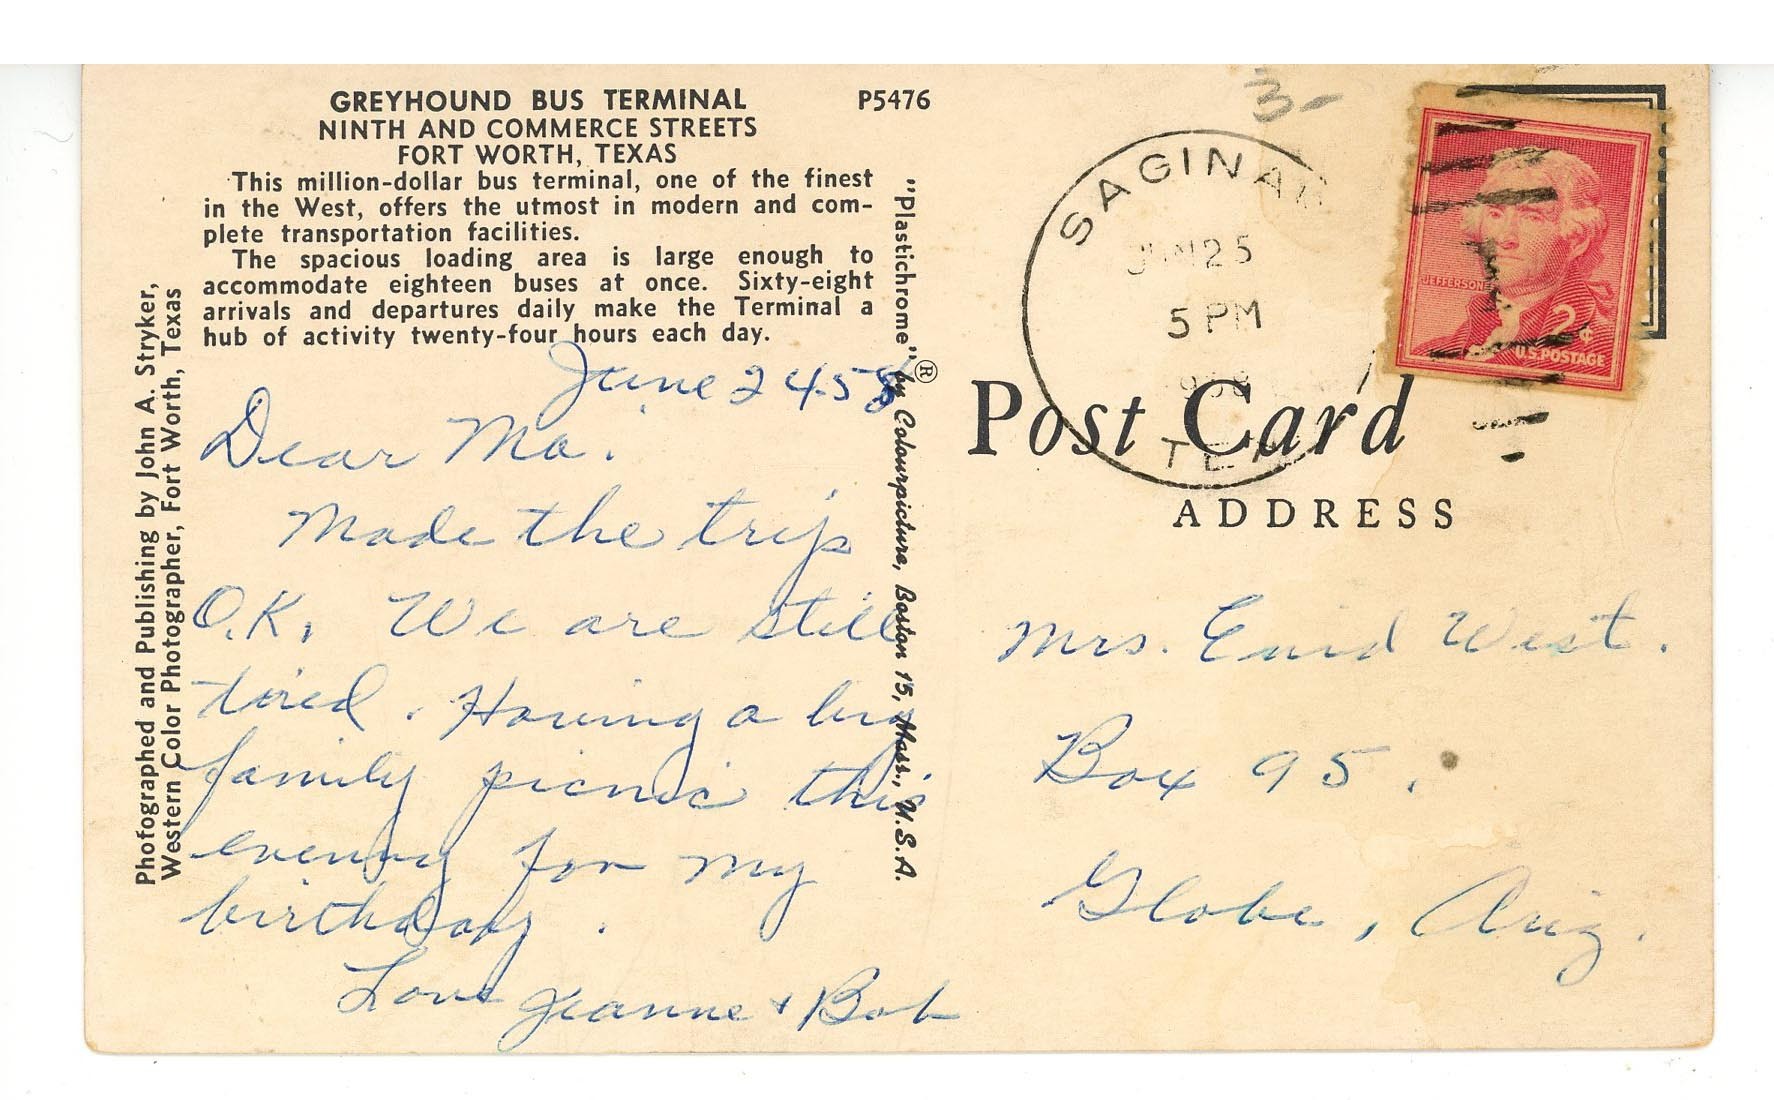 GREYHOUND BUS TERMINAL
NINTH AND COMMERCE STREETS
FORT WORTH, TEXAS
P5476
This million-dollar bus terminal, one of the finest
in the West, offers the utmost in modern and com-
plete transportation facilities.
The spacious loading area is large enough to
accommodate eighteen buses at once. Sixty-eight
arrivals and departures daily make the Terminal a
hub of activity twenty-four hours each day.
Photographed and Publishing by John A. Stryker,
Western Color Photographer, Fort Worth, Texas
"Plastichrome" ® by Colourpicture, Boston 15, Mass., U.S.A.
June 24-58
Dear Ma.
Made the trip
O.K. We are still
tired. Having a big
family picnic this
evening for my
birthday.
Love Jeanne + Bob
3-
SAGINAW
JUN 25
5 PM
1958
TEX
JEFFERSON
2¢
U.S. POSTAGE
Post Card
ADDRESS
Mrs. Enid West.
Box 95.
Globe, Ariz.